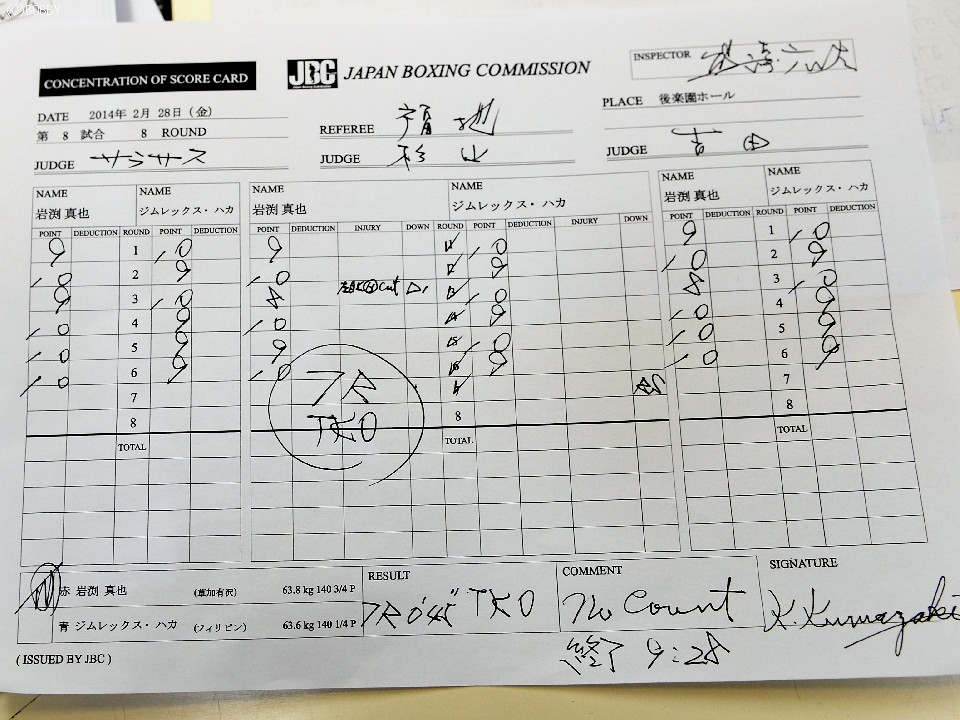 CONCENTRATION OF SCORE CARD
JBC JAPAN BOXING COMMISSION
INSPECTOR
DATE 2014年 2月 28日 (金)
第 8 試合 8 ROUND
JUDGE サラサス
REFEREE
JUDGE 杉山
PLACE 後楽園ホール
JUDGE 吉田
NAME NAME
岩渕 真也 ジムレックス・ハカ
POINT DEDUCTION ROUND POINT DEDUCTION
9 1 10
10 2 9
9 3 10
10 4 9
10 5 9
10 6 9
7
8
TOTAL
NAME NAME
岩渕 真也 ジムレックス・ハカ
POINT DEDUCTION INJURY DOWN ROUND POINT DEDUCTION INJURY DOWN
9 1 10
10 2 9
8 cut D1 3 10
10 4 9
9 5 10
10 6 9
7
8
7R
TKO
TOTAL
NAME NAME
岩渕 真也 ジムレックス・ハカ
POINT DEDUCTION ROUND POINT DEDUCTION
9 1 10
10 2 9
8 3 10
10 4 9
10 5 9
10 6 9
7
8
TOTAL
赤 岩渕 真也 (草加有沢) 63.8 kg 140 3/4 P
青 ジムレックス・ハカ (フィリピン) 63.6 kg 140 1/4 P
RESULT
7R 0'45" TKO
COMMENT
No Count
終了 9:28
SIGNATURE
K. Kumazaki
( ISSUED BY JBC )